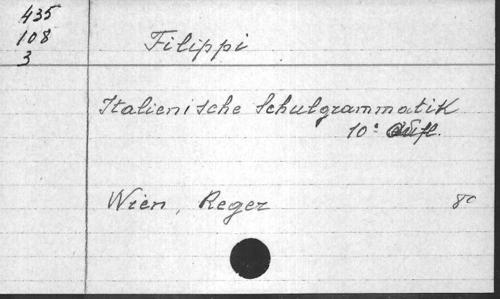 435
108
3
Filippi
Italienische Schulgrammatik
10: Aufl.
Wien, Reger
8º